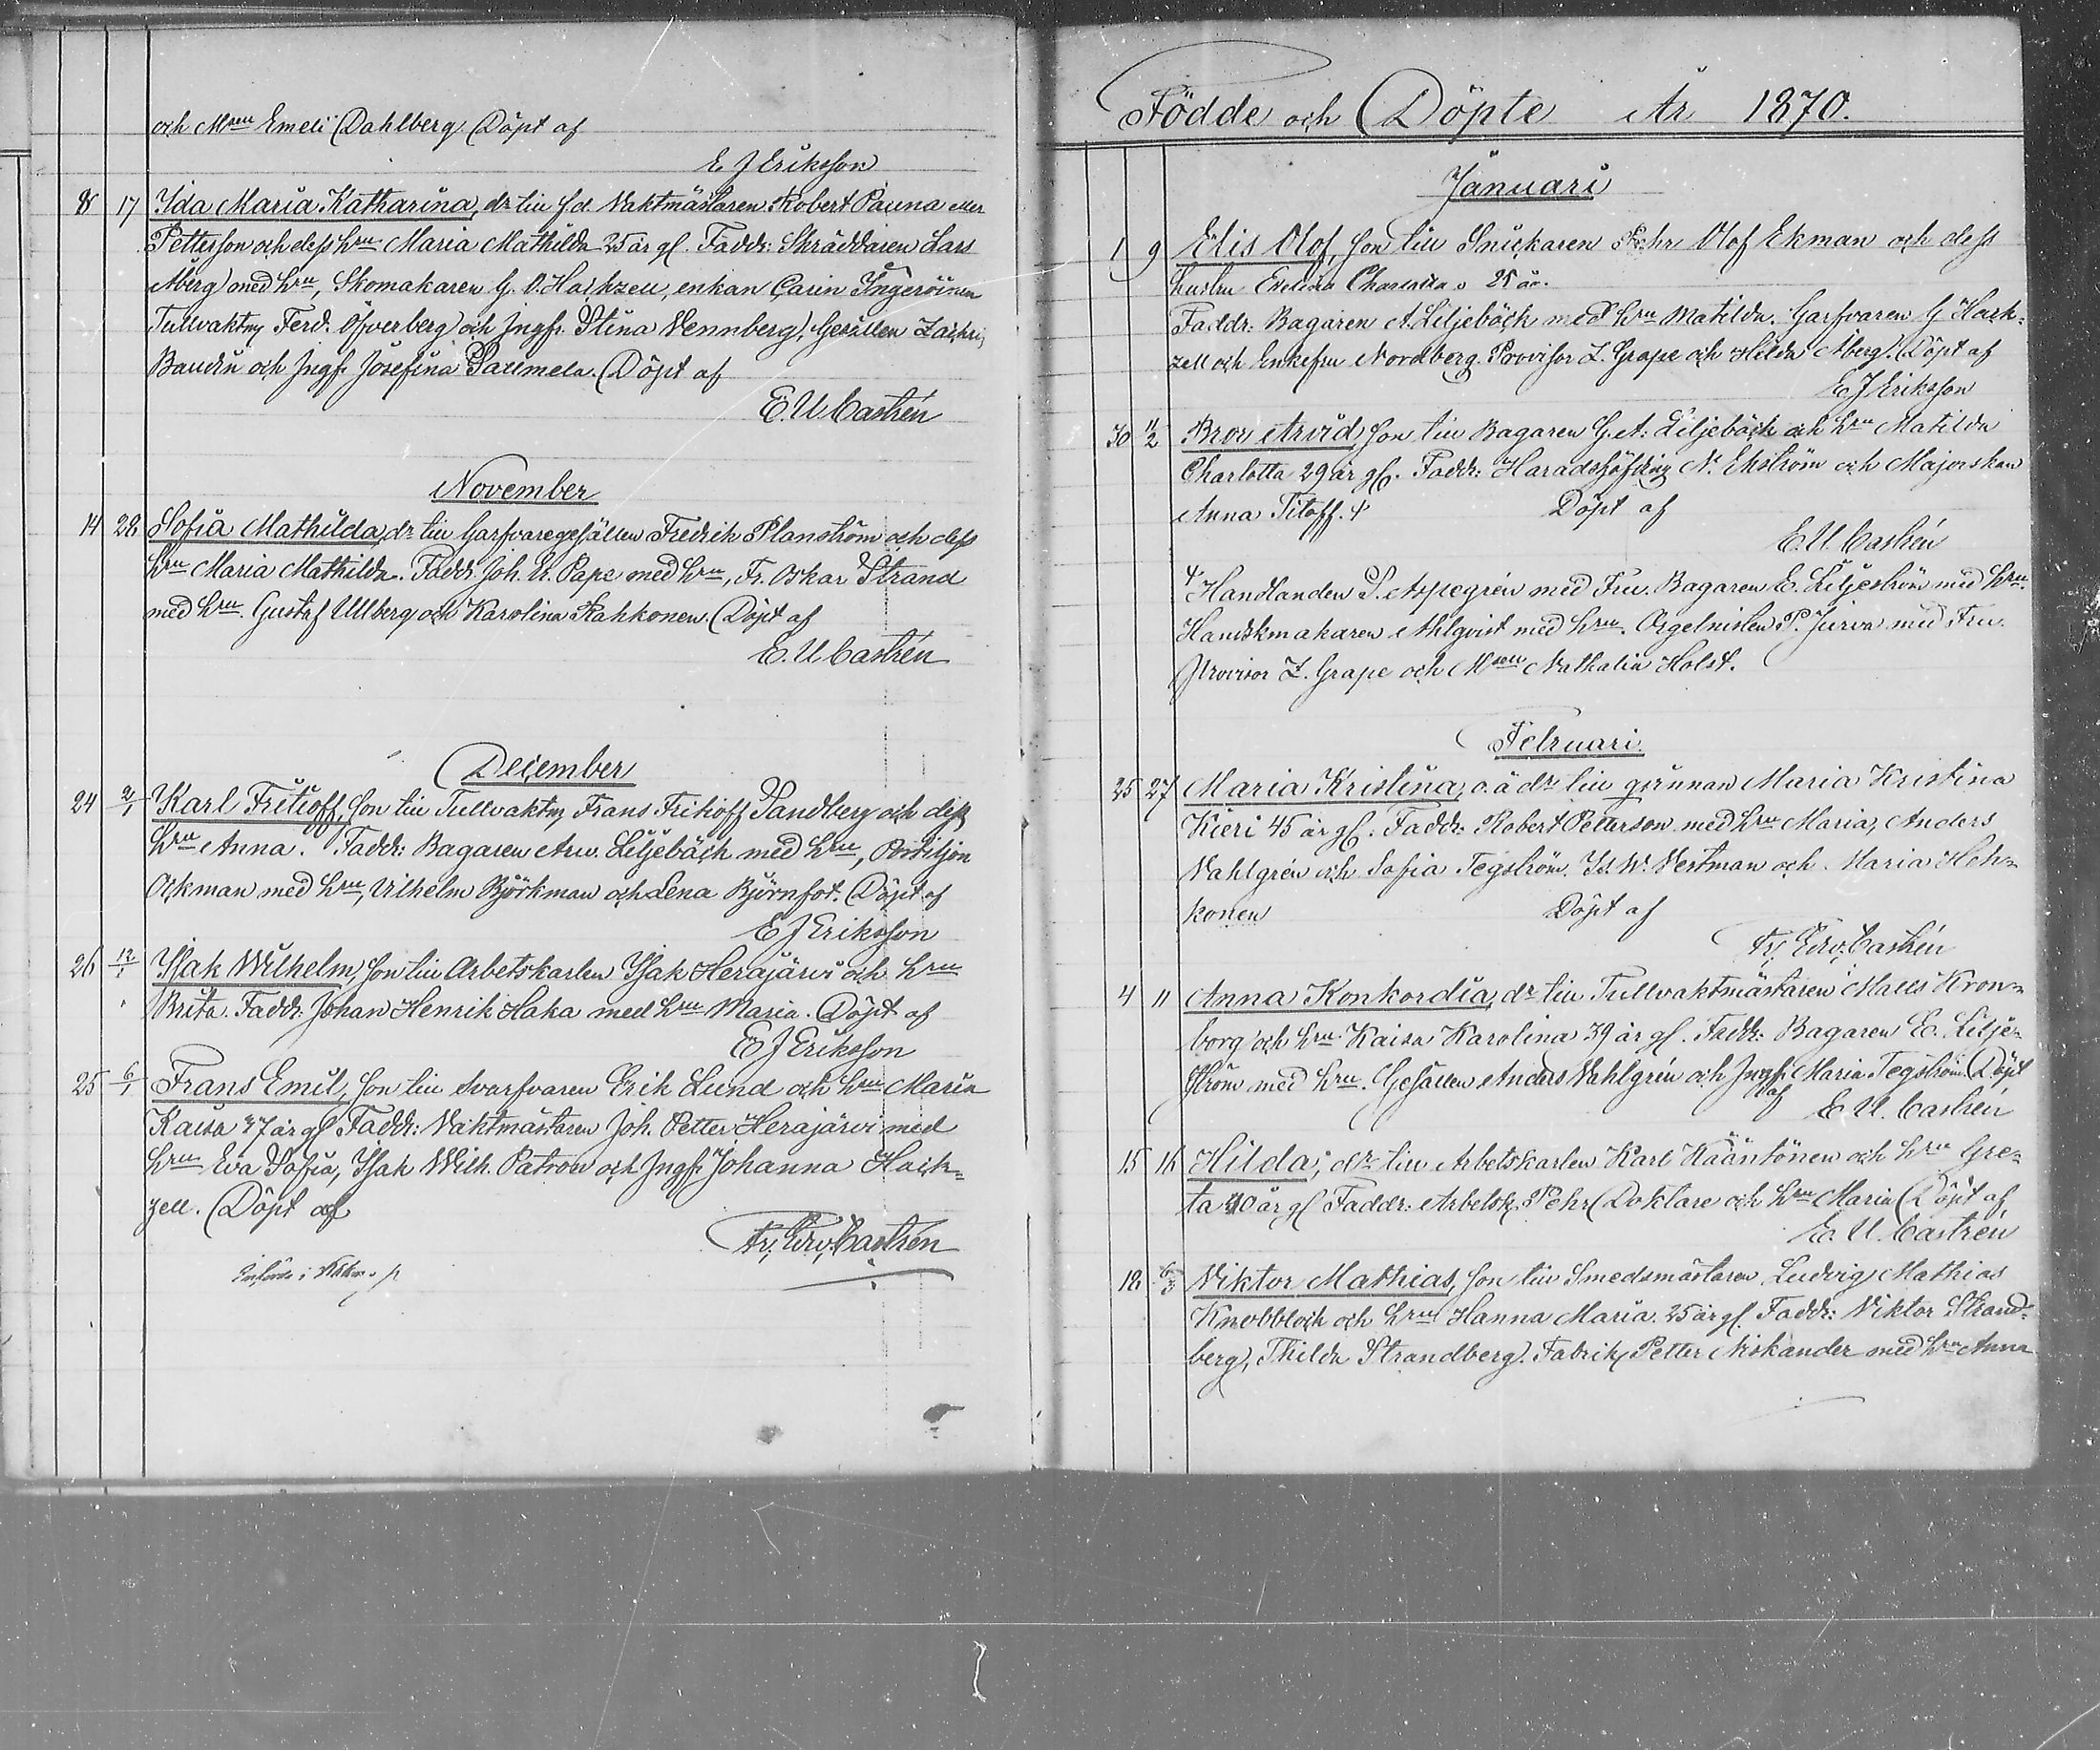 och Mselle Emeli Dahlberg. Döpt af
E J Eriksson
8 17 Ida Maria Katharina, dr till f.d. Vaktmästaren Robert Pauna eller
Pettersson och dess hru Maria Mathilda 25 år gl. Faddr: Skräddaren Lars
Åberg med hru, Skomakaren G. O. Hackzell, enkan Carin Ingeröinen
Tullvaktm Ferd. Öfverberg och Jngfr Stina Vennberg, Gesällen Zachri
Baudin och Jngfr Josefina Paumela. Döpt af
E. U. Castrén
November
14 28 Sofia Mathilda, dr till Garfvaregesällen Fredrik Planström och dess
hru Maria Mathilda. Faddr. Joh. Er. Pape med hru, Fr. Oskar Strand
med hru. Gustaf Ullberg och Karolina Kahkonen. Döpt af
E. U. Castrén
December
24 2/1 Karl Fritioff, son till Tullvaktm Frans Frithioff Sandberg och dess
hru Anna. Faddr: Bagaren Arw. Liljebäck med hru, Postiljon
Ackman med hru, Vilhelm Björkman och Lena Björnfot. Döpt af
E J Eriksson
26 12/1 Isak Wilhelm, son till Arbetskarlen Isak Herajärvi och hru
Brita. Faddr: Johan Henrik Haka med hru Maria. Döpt af
E J Eriksson
25 6/1 Frans Emil, son till Svarfvaren Erik Lund och hru Maria
Kaisa 37 år gl Faddr: Vaktmästaren Joh. Petter Herajärvi med
hru Eva Sofia, Isak Wilh. Patron och Jngfr Johanna Hack-
zell. Döpt af
Fr. Edv. Castrén
Födde och Döpte År 1870.
Januari
1 9 Elis Olof, son till Snickaren Pehr Olof Ekman och dess
hustru Evelina 25 år.
Faddr: Bagaren A. Liljebäck med hru Matilda. Garfvaren G Hack-
zell och Enkefru Nordberg. Provisor Z. Grape och Hilda Åberg. Döpt af
E J Eriksson
30 11/2 Bror Arvid son till Bagaren G. A. Liljebäck och hru Matilda
Charlotta 29 år gl. Faddr: Häradshöfding N. Ekström och Majorskan
Anna Titoff. + Döpt af
E. U. Castrén
+ Handlanden S. Aspegrén med Fru. Bagaren E. Liljeström med hru.
Handskmakaren Ahlqvist med hru. Orgelnisten P. Jurva med Fru.
Provisor Z. Grape och Mselle Nathalia Holst.
Februari.
25 27 Maria Kristina, o.ä dr till qvinnan Maria Kristina
Kieri 45 år gl. Faddr: Robert Petterson med hru Maria, Anders
Vahlgrén och Sofia Tegström. Is. W. Vestman och Maria Hoik-
konen Döpt af
Fr. Edv. Castrén
4 11 Anna Konkordia, dr till Tullvaktmästaren Matts Kron-
borg och hru Kaisa Karolina 39 år gl. Faddr: Bagaren E. Lilje-
ström med hru. Gesällen Anders Vahlgrén och Jngfr Maria Tegström Döpt
af E. U. Castrén
15 16 Hilda, dr till Arbetskarlen Karl Kääntönen och hru Gre-
ta 40 år gl Faddr: Arbetsk. Pehr Doktare och hru Maria Döpt af
E. U. Castrén
12 6/3 Viktor Mathias, son till Smedsmästaren Ludvig Mathias
Knobbloch och hru Hanna Maria 25 år gl. Faddr: Viktor Strand-
berg, Thilda Strandberg. Fabrik Petter Niskander med hru Anna